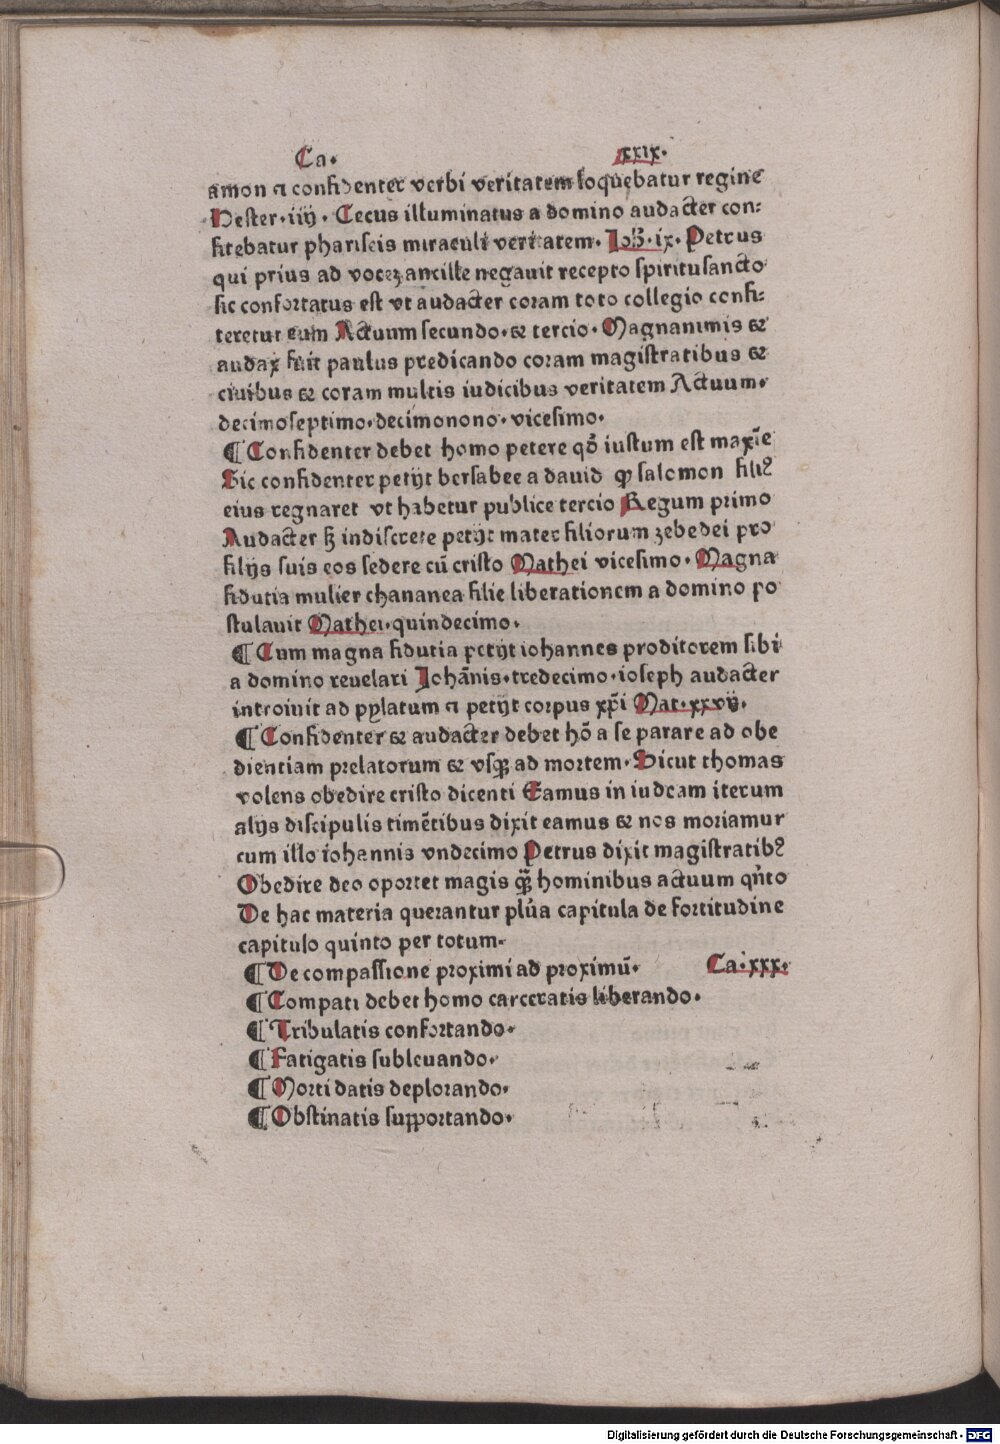 Ca. xxix.
amon ⁊ confidenter verbi veritatem loquebatur regine
Hester.iiij. Cecus illuminatus a domino audacter con:
fitebatur phariseis miraculi veritatem. Joħ.ix. Petrus
qui prius ad vocez ancille negauit recepto spiritusancto
sic confortatus est vt audacter coram toto collegio confi:
teretur eum Actuum secundo. & tercio. Magnanimis &
audax fuit paulus predicando coram magistratibus &
ciuibus & coram multis iudicibus veritatem Actuum.
decimoseptimo.decimonono.vicesimo.
¶ Confidenter debet homo petere qđ iustum est maxīe
Sic confidenter petijt bersabee a dauid ꝙ salomon filiꝰ
eius regnaret vt habetur publice tercio Regum primo
Audacter sꝫ indiscrete petijt mater filiorum zebedei pro
filijs suis eos sedere cū cristo Mathei vicesimo. Magna
fidutia mulier chananea filie liberationem a domino po
stulauit Mathei.quindecimo.
¶ Cum magna fidutia petijt iohannes proditorem sibi
a domino reuelari Johānis.tredecimo.ioseph audacter
introiuit ad pylatum ⁊ petijt corpus xp̄i Mat.xxvij.
¶ Confidenter & audacter debet hō a se parare ad obe
dientiam prelatorum & vsqꝫ ad mortem. Sicut thomas
volens obedire cristo dicenti Eamus in iudeam iterum
alijs discipulis timētibus dixit eamus & nos moriamur
cum illo iohannis vndecimo Petrus dixit magistratibꝰ
Obedire deo oportet magis qꝫ̄ hominibus actuum qn̄to
De hac materia querantur plūa capitula de fortitudine
capitulo quinto per totum.
¶ De compassione proximi ad proximū. Ca.xxx.
¶ Compati debet homo carceratis liberando.
¶ Tribulatis confortando.
¶ Fatigatis subleuando.
¶ Morti datis deplorando.
¶ Obstinatis supportando.
Digitalisierung gefördert durch die Deutsche Forschungsgemeinschaft - DFG